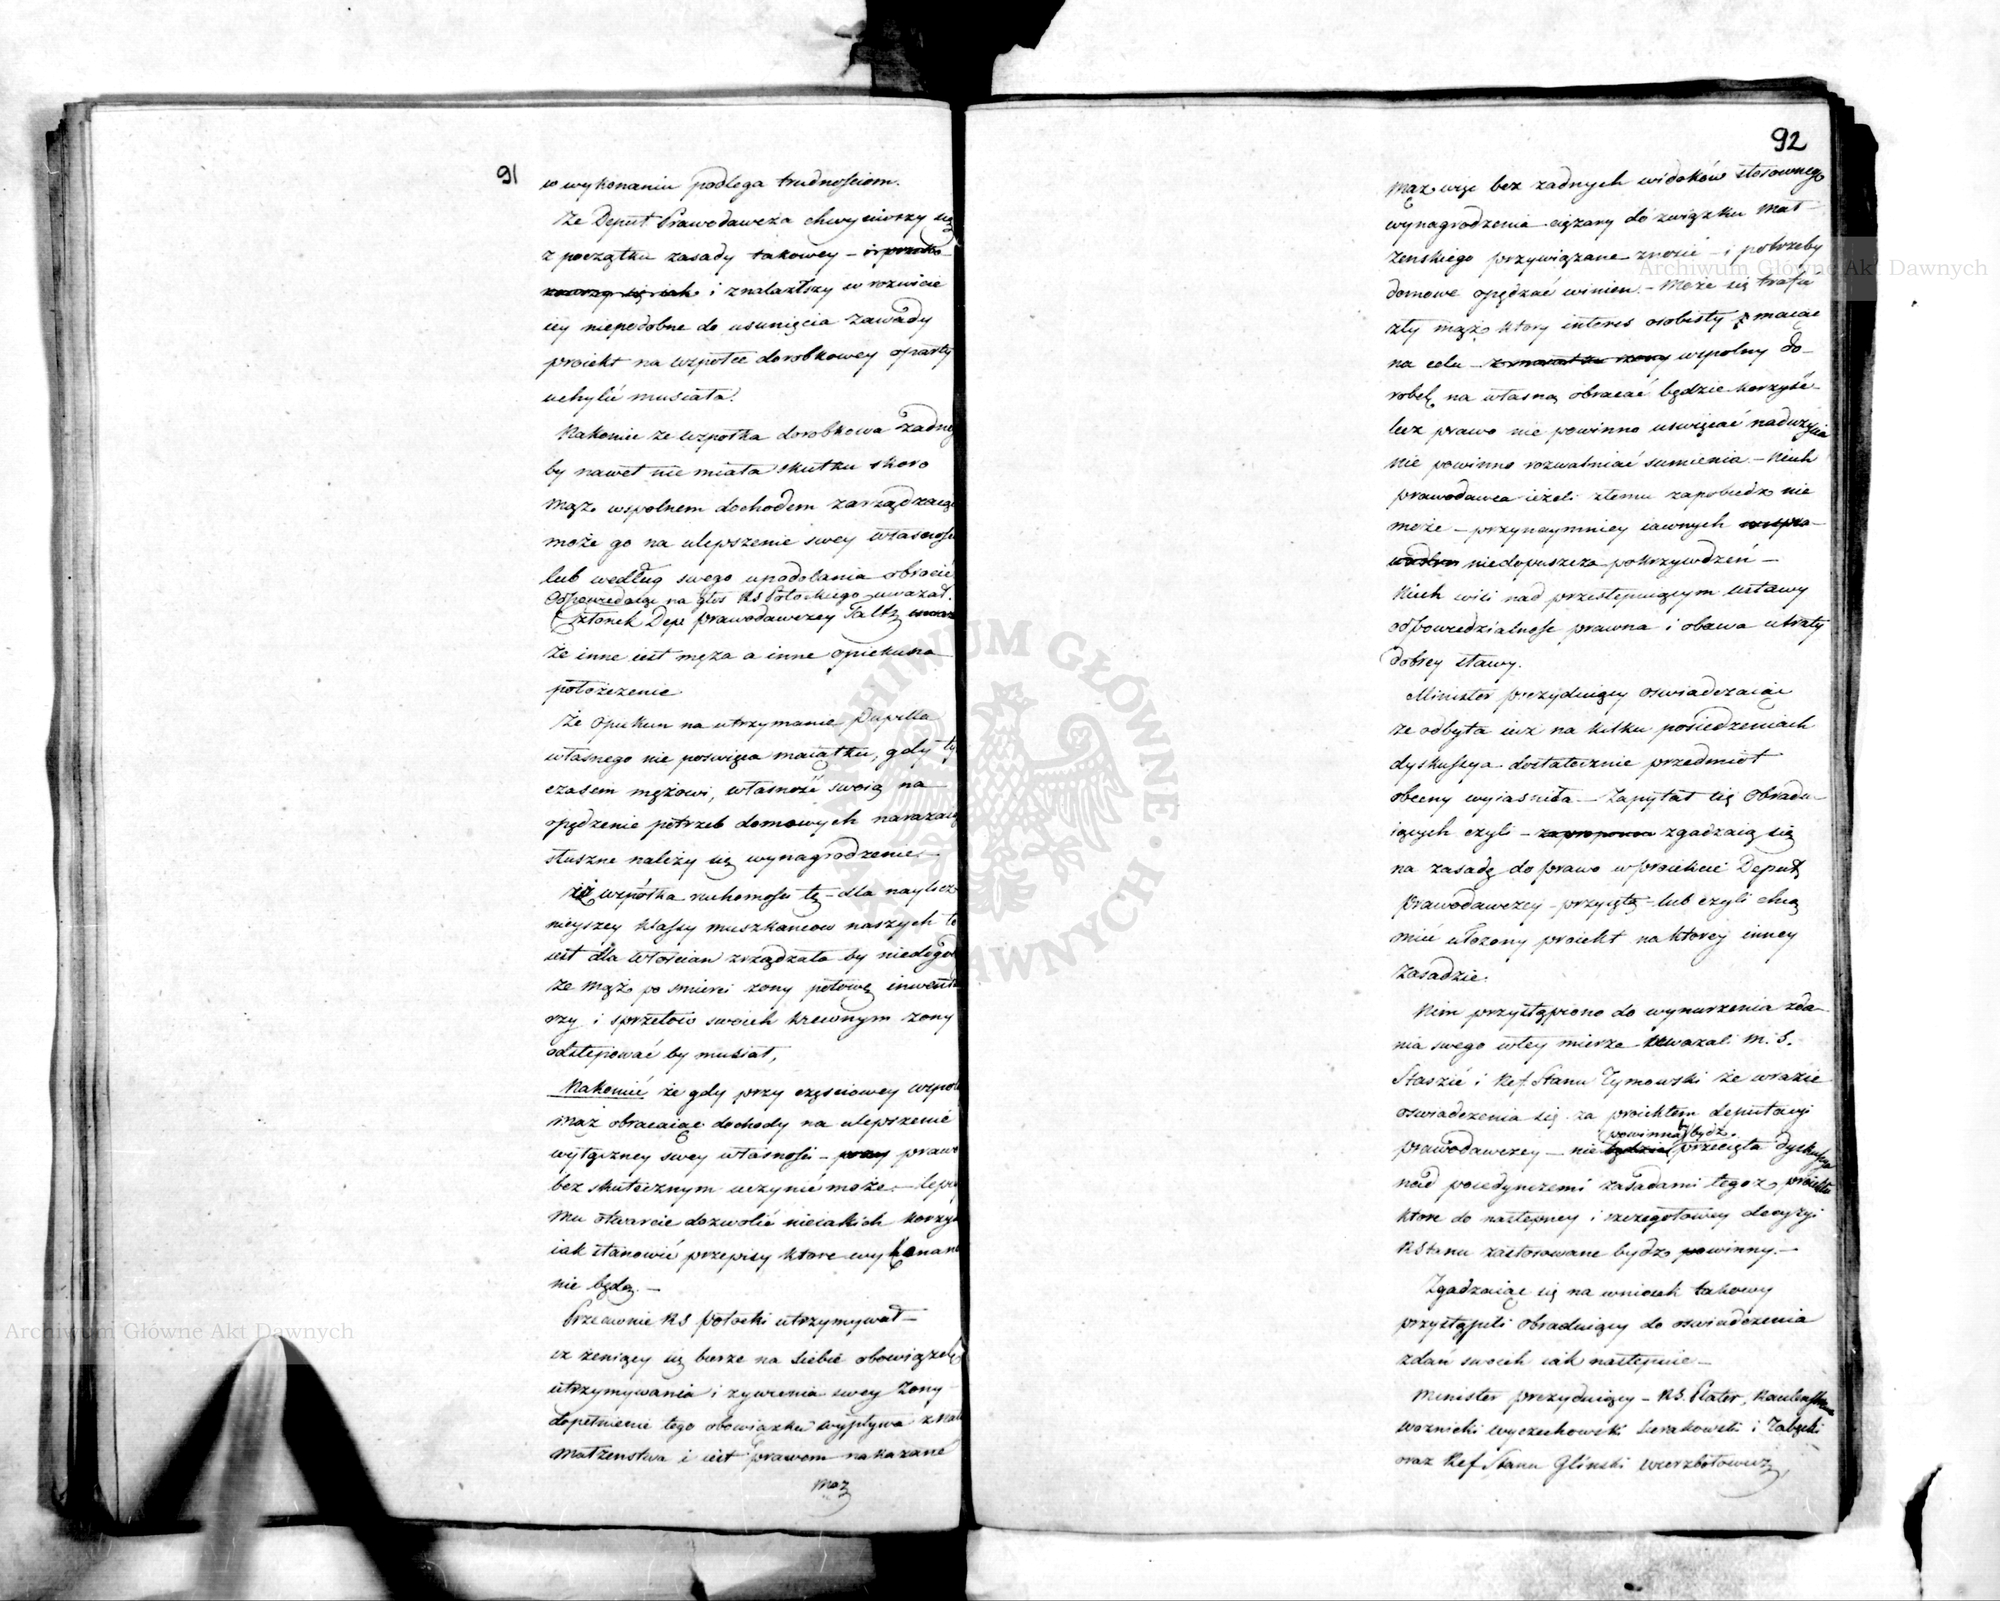 91
w wykonaniu podlega trudnościom.
że Deput Prawodawcza chwyciwszy się
z początku zasady takowey –
i znalazłszy w rozwicie
iey niepodobne do usunięcia zawady
proiekt na wspołce dorobkowey oparty
uchylić musiała.
Nakoniec że wspołka dorobkowa żadneg
by nawet nie miała skutku skoro
mąż wspolnem dochodem zarządzaiąc
może go na ulepszenie swey własności
lub według swego upodobania obrocić
Odpowiedaiąc na głos RS Potockiego uważał.
Członek Dep prawodawczey Faltz
że inne iest męża a inne opiekuna
położezenie
że opiekun na utrzymanie Pupilla
własnego nie poswięca maiątku, gdy ty
czasem mężowi, własność swoią na
opędzenie potrzeb domowych narażaią
słuszne należy się wynagrodzenie.
że wspołka ruchomości tę – dla naylicz
nieyszey klassy mieszkancow naszych to
iest dla włościan zrządzała by niedogod
że mąż po smierci żony połowę inwenta
rzy i sprzętow swoich krewnym żony
odstępować by musiał,
Nakoniec że gdy przy częściowey wspol
mąż obracaiąc dochody na ulepszenie
wyłączney swey własności – prawo
bez skutecznym uczynić może – lepiey
mu otwarcie dozwolić nieiakich korzy
iak stanowić przepisy ktore wykonane
nie będą –
Przeciwnie RS Potocki utrzymywał –
iż żeniący się bierze na siebie obowiązek
utrzymywania i żywienia swey żony
dopełnienie tego obowiązku wypływa z natu
małżenstwa i iest prawem nakazane
mąż
92
Mąż więc bez żadnych widoków stosownego
wynagrodzenia ciężary do związku Mał-
żenskiego przywiązane znosić – i potrzeby
domowe opędzać winien – Może się trafia
zły mąż ktory interes osobisty maiąc
na celu – wspolny do-
robek na własną obracać będzie korzyść –
lecz prawo nie powinno uswięcać nadużycia
nie powinno rozwalniać sumienia – Niech
prawodawca ieżeli złemu zapobiedz nie
może – przynaymniey iawnych
niedopuszcza pokrzywdzeń –
Niech wisi nad przestępuiącym ustawy
odpowiedzialność prawna i obawa utraty
dobrey sławy.
Minister prezyduiący oswiadczaiąc
że odbyta iuż na kilku posiedzeniach
dyskussya dostatecznie przedmiot
obecny wyiasniła – Zapytał się Obradu-
iących czyli – zgadzaią się
na zasadę do prawo w proiekcie Deput
Prawodawczey – przyiętą – lub czyli chcą
mieć ułożony proiekt na ktorey inney
zasadzie.
Nim przystąpiono do wynurzenia zda-
nia swego w tey mierze uważali M. S.
Staszic i Ref. Stanu Tymowski że w razie
oswiadczenia się za proiektem deputacyi
powinna bydź
prawodawczey – nie przecięta dyskussya
nad poiedynczemi zasadami tegoż proiektu
ktore do następney i szczegołowey decyzyi
R Stanu zastosowane bydź powinny. –
Zgadzaiąc się na wniosek takowy
przystąpili Obraduiący do oswiadczenia
zdań swoich iak następuie –
Minister prezyduiący – RS. Plater,
Woznicki Wyczechowski Sierakowski i
oraz Ref Stanu Gliński Wierzbołowicz,